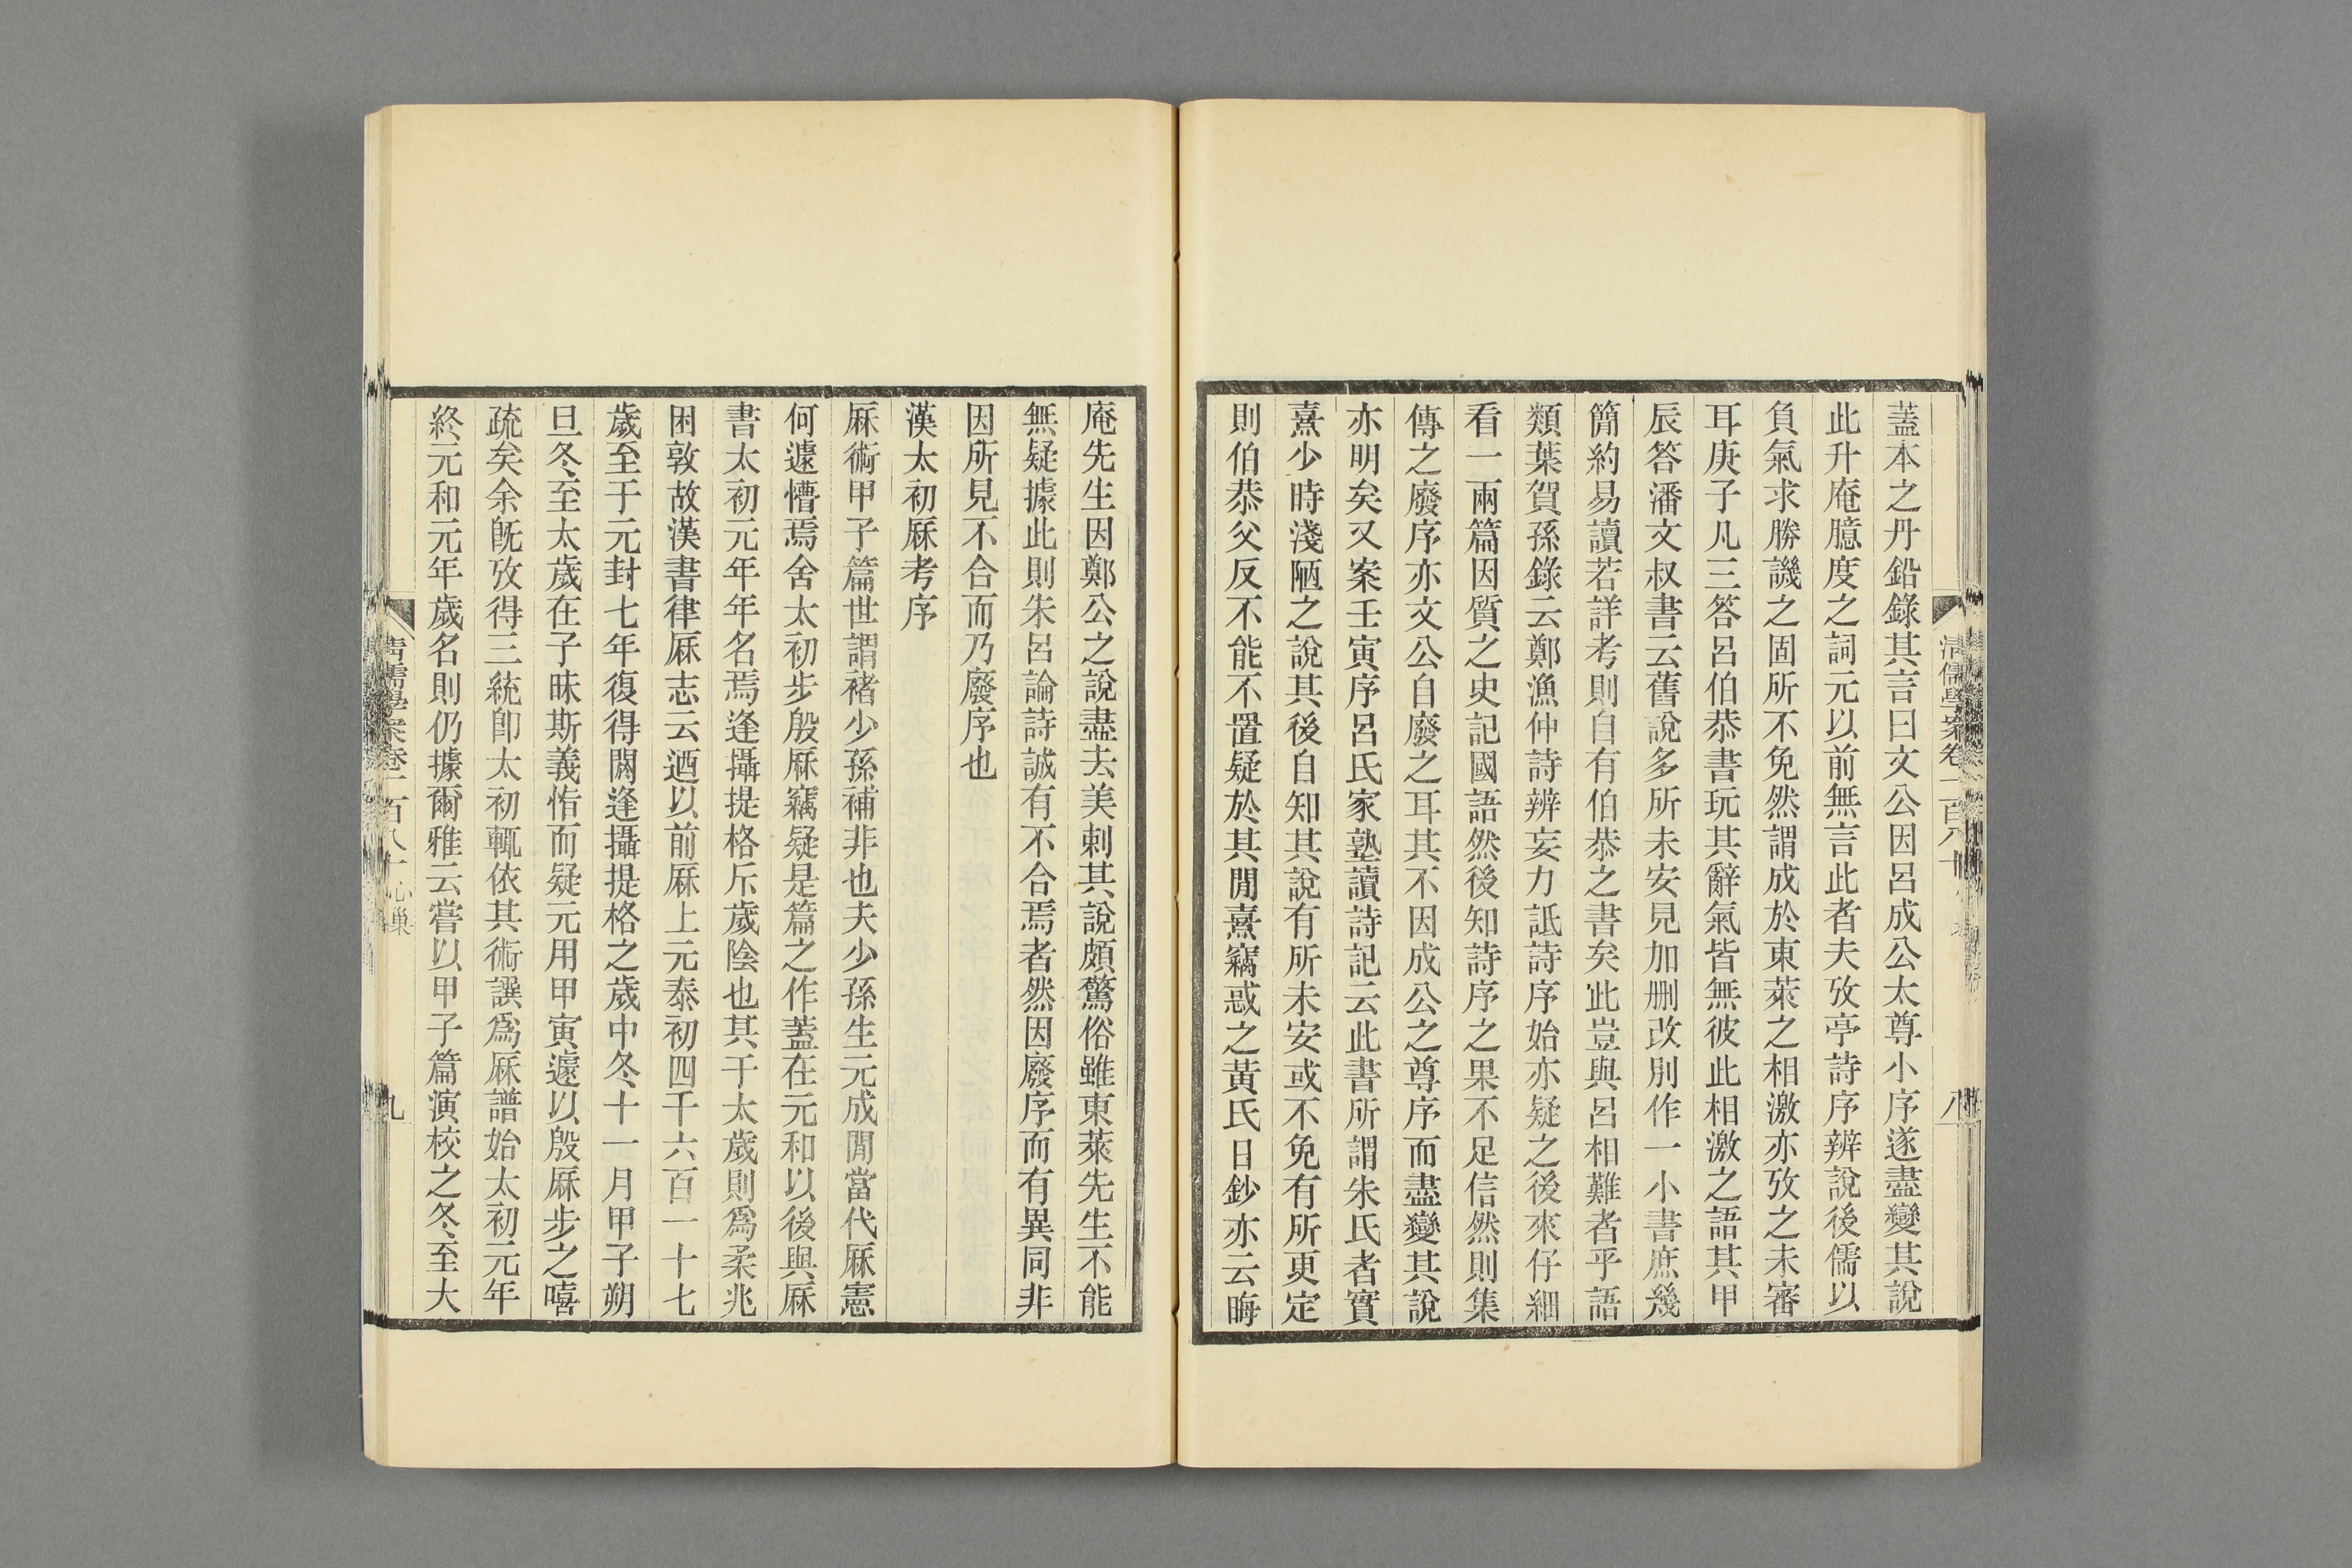 蓋本之丹鉛錄其言曰文公因呂成公太尊小序遂盡變其說
此升庵臆度之詞元以前無言此者夫攷亭詩序辨說後儒以
負氣求勝譏之固所不免然謂成於東萊之相激亦攷之未審
耳庚子凡三答呂伯恭書玩其辭氣皆無彼此相激之語其甲
辰答潘文叔書云舊說多所未安見加刪改別作一小書庶幾
簡約易讀若詳考則自有伯恭之書矣此豈與呂相難者乎語
類葉賀孫錄云鄭漁仲詩辨妄力詆詩序始亦疑之後來仔細
看一兩篇因質之史記國語然後知詩序之果不足信然則集
傳之廢序亦文公自廢之耳其不因成公之尊序而盡變其說
亦明矣又案壬寅序呂氏家塾讀詩記云此書所謂朱氏者實
熹少時淺陋之說其後自知其說有所未安或不免有所更定
則伯恭父反不能不置疑於其閒熹竊惑之黃氏日鈔亦云晦
清儒學案卷一百八十
八
庵先生因鄭公之說盡去美刺其說頗驚俗雖東萊先生不能
無疑據此則朱呂論詩誠有不合焉者然因廢序而有異同非
因所見不合而乃廢序也
漢太初厤考序
厤術甲子篇世謂褚少孫補非也夫少孫生元成閒當代厤憲
何遽懵焉舍太初步殷厤竊疑是篇之作蓋在元和以後與厤
書太初元年年名焉逢攝提格斥歲陰也其干太歲則爲柔兆
困敦故漢書律厤志云迺以前厤上元泰初四千六百一十七
歲至于元封七年復得閼逢攝提格之歲中冬十一月甲子朔
旦冬至太歲在子昧斯義恉而疑元用甲寅遽以殷厤步之嘻
疏矣余旣攷得三統卽太初輒依其術譔爲厤譜始太初元年
終元和元年歲名則仍據爾雅云嘗以甲子篇演校之冬至大
清儒學案卷一百八十 心巢
九